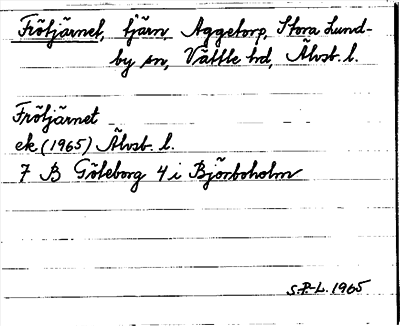 Frötjärnet, tjärn. Aggetorp, Stora Lund-
by sn, Vättle hd, Älvsb. l.
Frötjärnet
ek (1965) Älvsb. l.
7 B Göteborg 4 i Björboholm
S.P-L. 1965